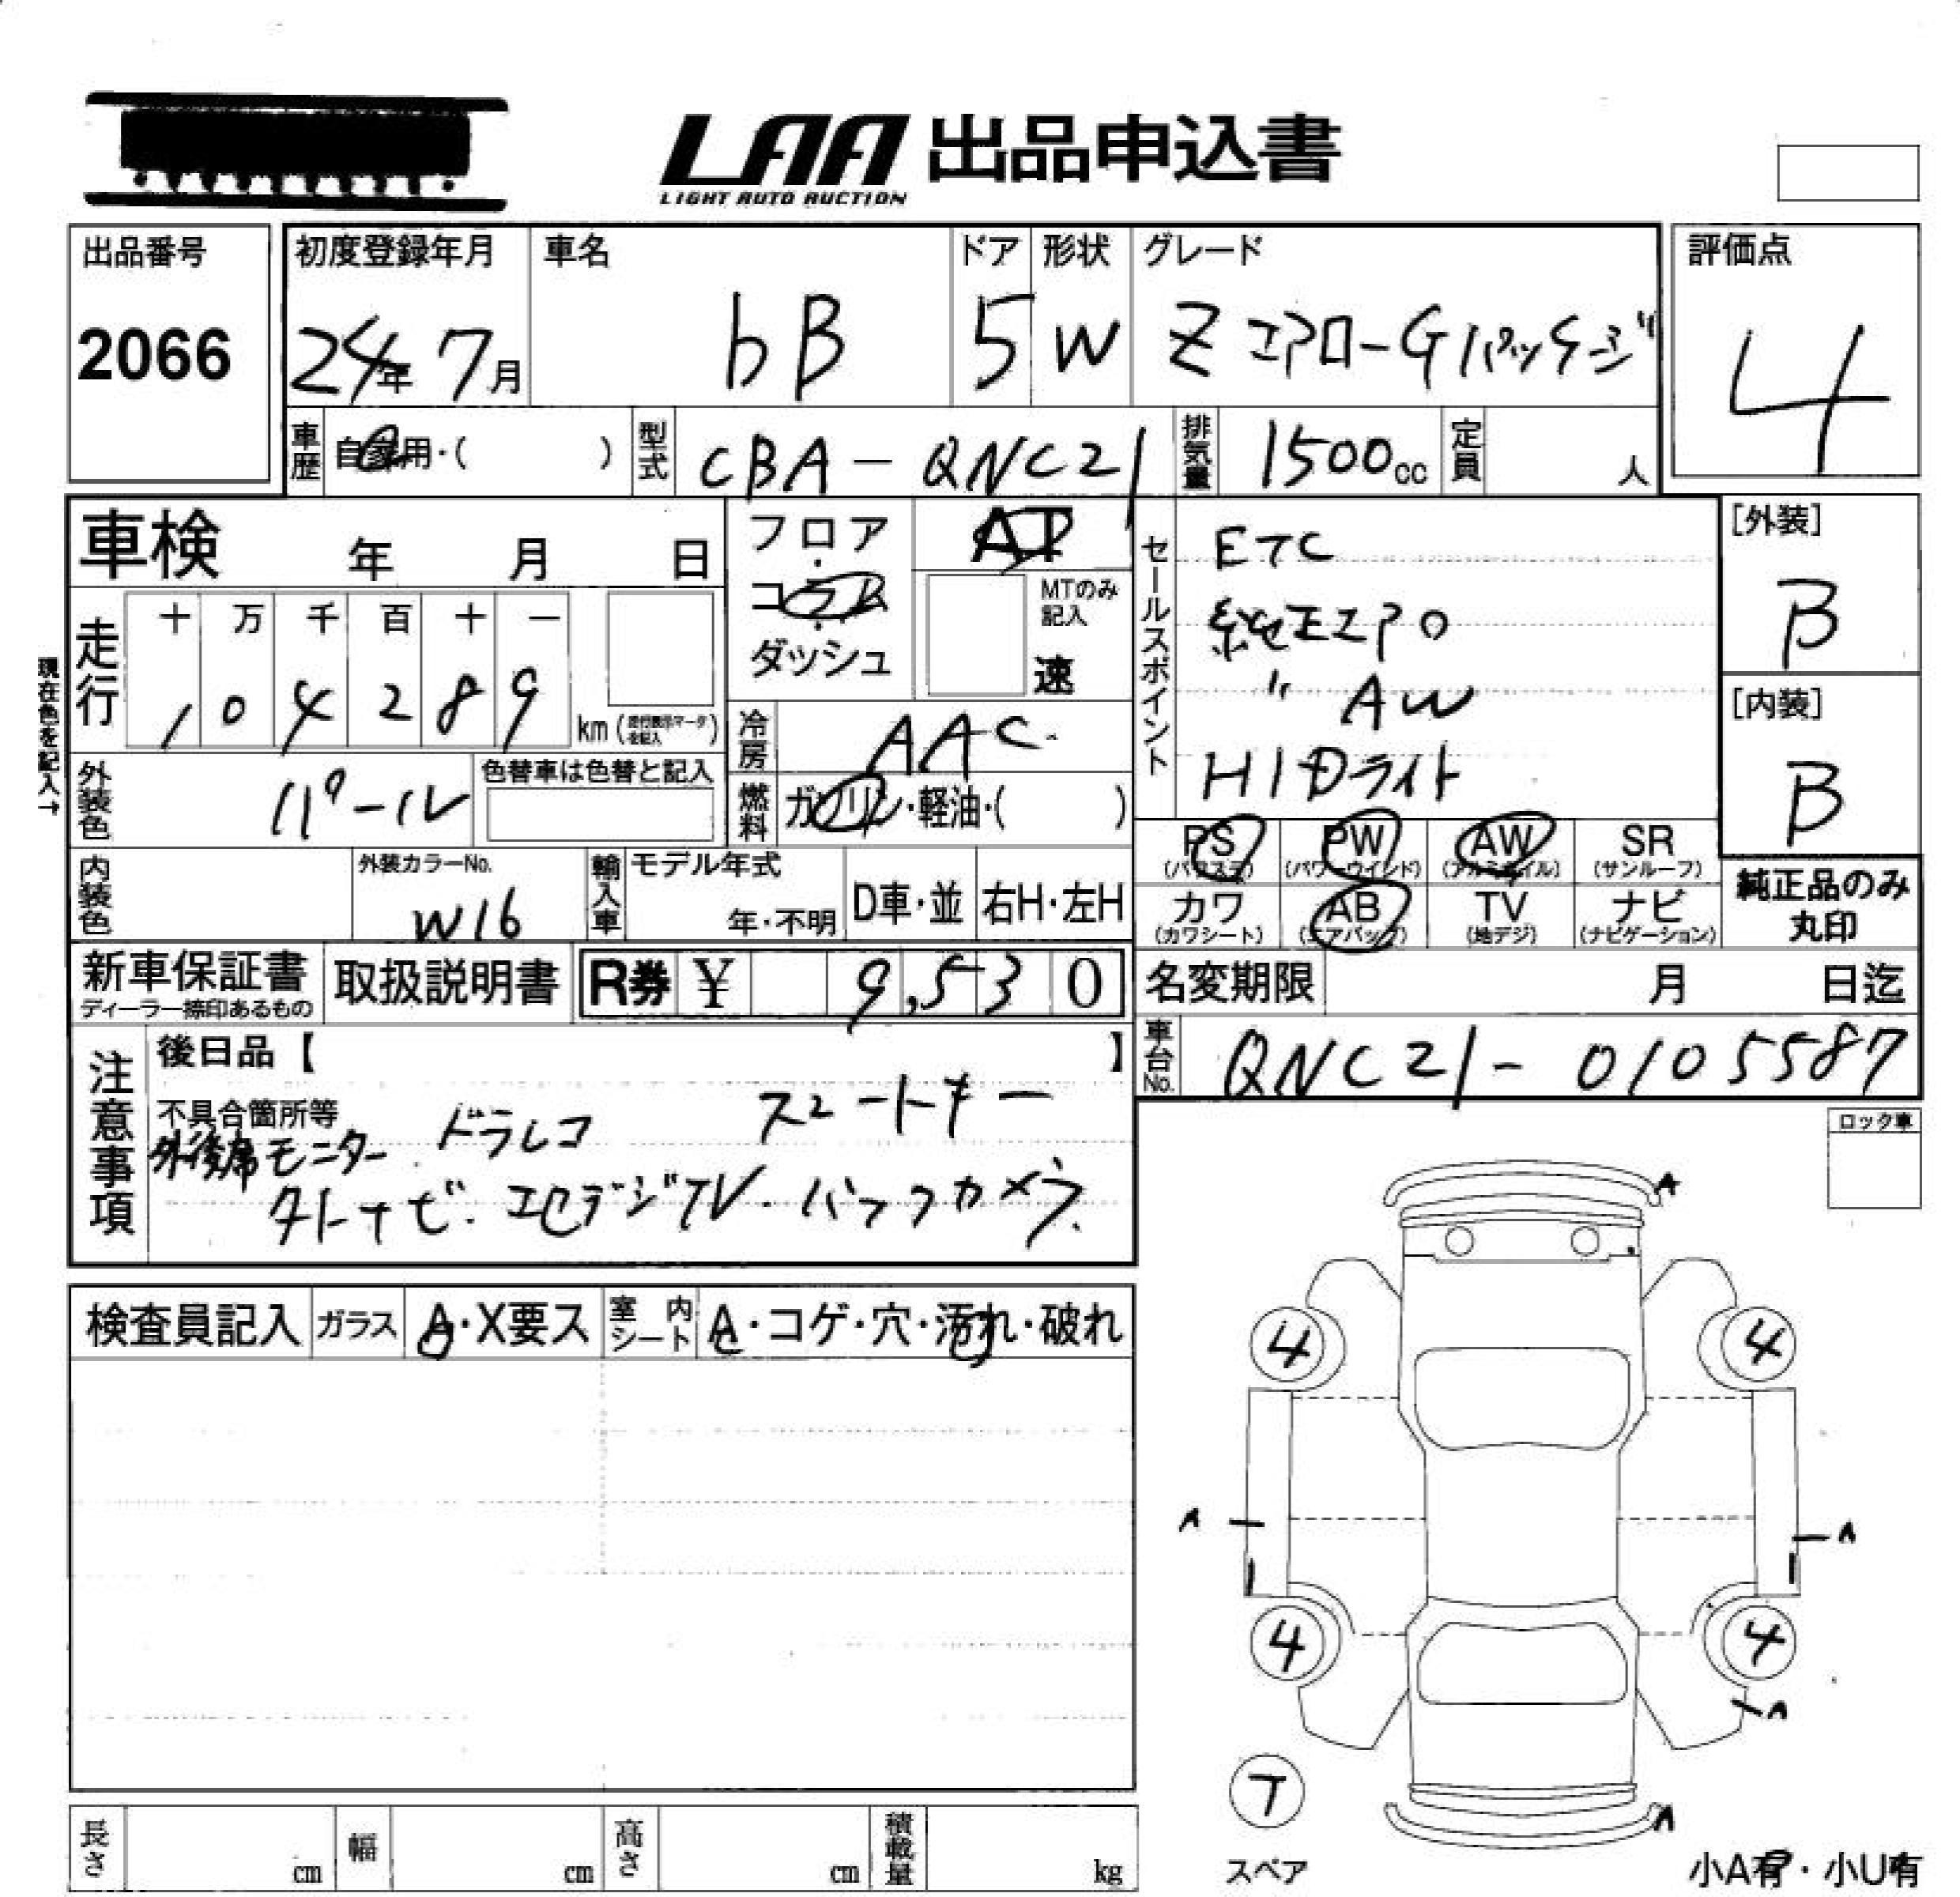 LAA 出品申込書
LIGHT AUTO AUCTION
出品番号
2066
初度登録年月
24年 7月
車名
bB
ドア
5
形状
W
グレード
Z エアロ-Gパッケージ
評価点
4
車歴
自家用・( )
型式
CBA - QNC21
排気量
1500cc
定員
人
車検 年 月 日
フロア
・
コラム
・
ダッシュ
AT
MTのみ
記入
速
走行
十 万 千 百 十 一
1 0 4 2 8 9
km
現在色を記入→
冷房
AAC
燃料
ガソリン・軽油・( )
外装色
パール
色替車は色替と記入
内装色
外装カラーNo.
W16
輸入車
モデル年式
年・不明
D車・並
右H・左H
セールスポイント
ETC
純正エアロ
〃 AW
HIDライト
[外装]
B
[内装]
B
PS
(パワステ)
PW
(パワーウインド)
AW
(アルミホイル)
SR
(サンルーフ)
カワ
(カワシート)
AB
(エアバッグ)
TV
(地デジ)
ナビ
(ナビゲーション)
純正品のみ
丸印
新車保証書
ディーラー捺印あるもの
取扱説明書
R券 ¥ 9,530
名変期限 月 日迄
車台No.
QNC21- 0105587
注意事項
後日品【 】
不具合箇所等
外後席モニター ドラレコ スマートキー
外ナビ・エセデジTV・バックカメラ
検査員記入
ガラス
A・X要ス
室内シート
A・コゲ・穴・汚れ・破れ
ロック車
A
4 4
A A
4 4
A
T
スペア
A
小A有・小U有
長さ cm
幅 cm
高さ cm
積載量 kg